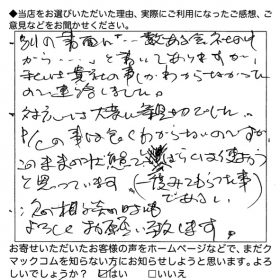 ◆当店をお選びいただいた理由、実際にご利用になったご感想、ご
意見などをお聞かせください。
別の書面に…数ある会社の中
から…と書いてありますが、
私は貴社の事しかわからなかった
ので連絡しました。
対応は大変に親切でした。
P/Cの事は良くわからないのですが
このままの状態でしばらくは使おう
と思っています。(読みてもらった事
であるし)
急の相談の時は
よろしくお願い致します。
お寄せいただいたお客様の声をホームページなどで、まだク
マックコムを知らない方にお知らせしようと思います。よろ
しいでしょうか? ☑はい □いいえ